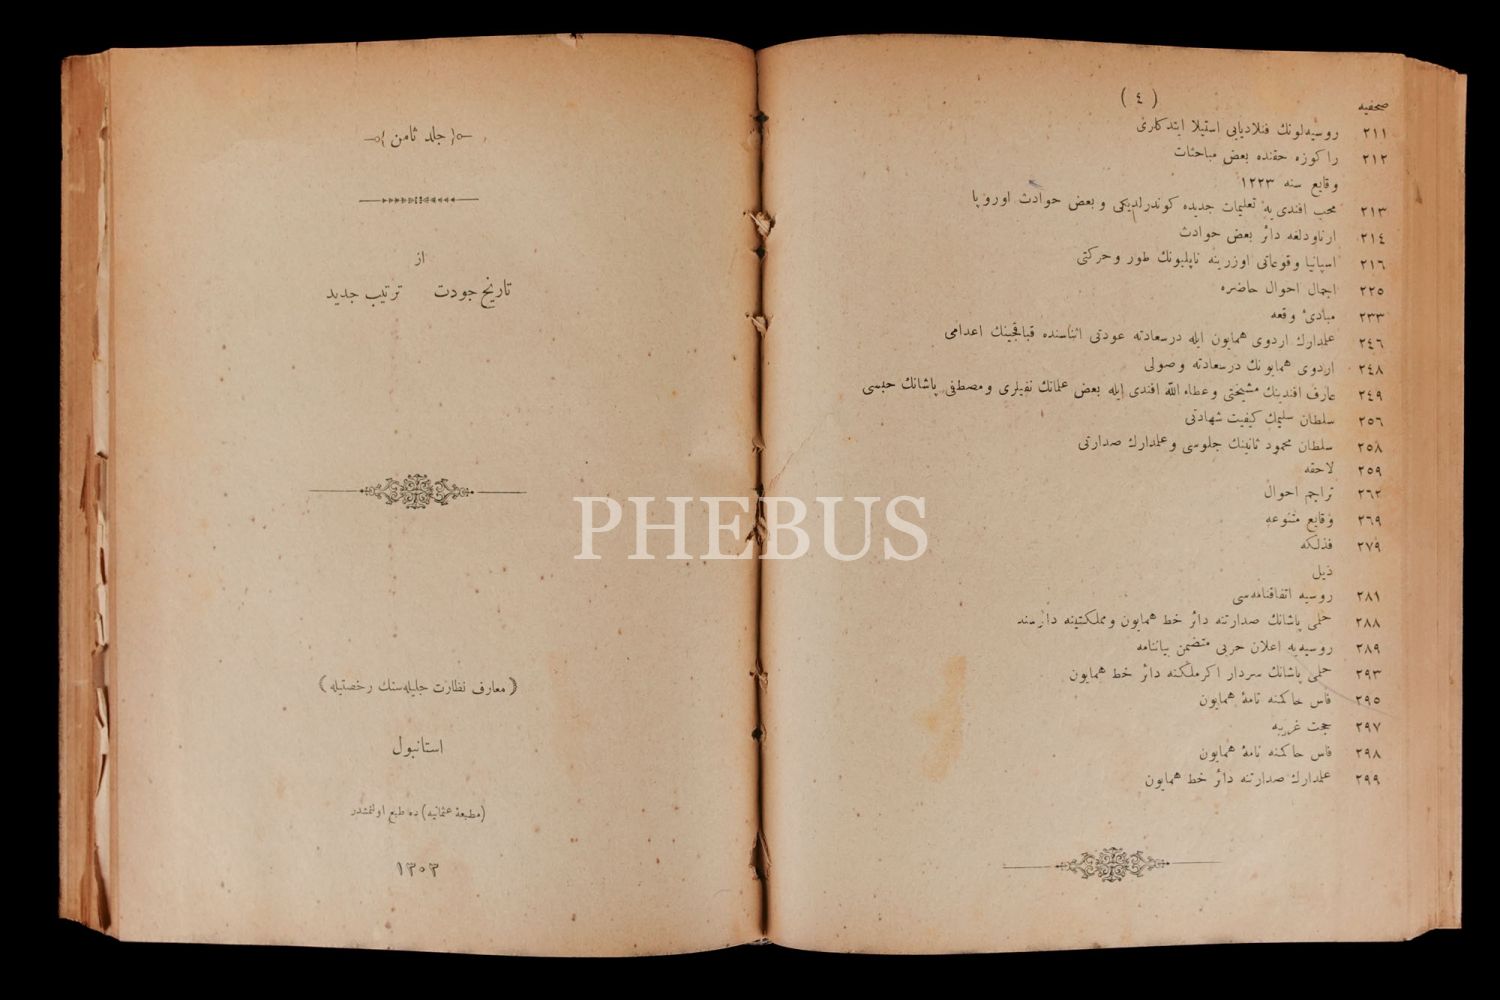 ( ٤ )
صحيفه
٢١١ روسيه‌لونك فنلاديايى استيلا ايتدكلرى
٢١٢ راكوزه حقنده بعض مباحثات
وقايع سنه ١٢٢٣
٢١٣ محب افندى‌يه تعليمات جديده كوندرلديكى و بعض حوادث اوروپا
٢١٤ ارناودلغه دائر بعض حوادث
٢١٦ اسپانيا وقوعاتى اوزرينه ناپليونك طور و حركتى
٢٢٥ اجمال احوال حاضره
٢٣٣ مبادئ وقعه
٢٤٦ علمدارك اردوى همايون ايله درسعادته عودتى اثناسنده قباقجينك اعدامى
٢٤٨ اردوى همايونك درسعادته وصولى
٢٤٩ عارف افندينك مشيختى و عطاء الله افندى ايله بعض علمانك نفيلرى و مصطفى پاشانك حبسى
٢٥٦ سلطان سليمك كيفيت شهادتى
٢٥٨ سلطان محمود ثانينك جلوسى و علمدارك صدارتى
٢٥٩ لاحقه
٢٦٢ تراجم احوال
٢٦٩ وقايع متنوعه
٢٧٩ فذلكه
ذيل
٢٨١ روسيه اتفاقنامه‌سى
٢٨٨ حلمى پاشانك صدارتنه دائر خط همايون و مملكتينه دائر سند
٢٨٩ روسيه‌يه اعلان حربى متضمن بياننامه
٢٩٣ حلمى پاشانك سردار اكرملكنه دائر خط همايون
٢٩٥ فاس حاكمنه نامۀ همايون
٢٩٧ حجت غريبه
٢٩٨ فاس حاكمنه نامۀ همايون
٢٩٩ علمدارك صدارتنه دائر خط همايون
جلد ثامن
از
تاريخ جودت ترتيب جديد
﴿ معارف نظارت جليله‌سنك رخصتيله ﴾
استانبول
(مطبعۀ عثمانيه) ده طبع اولنمشدر
١٣٠٣
PHEBUS